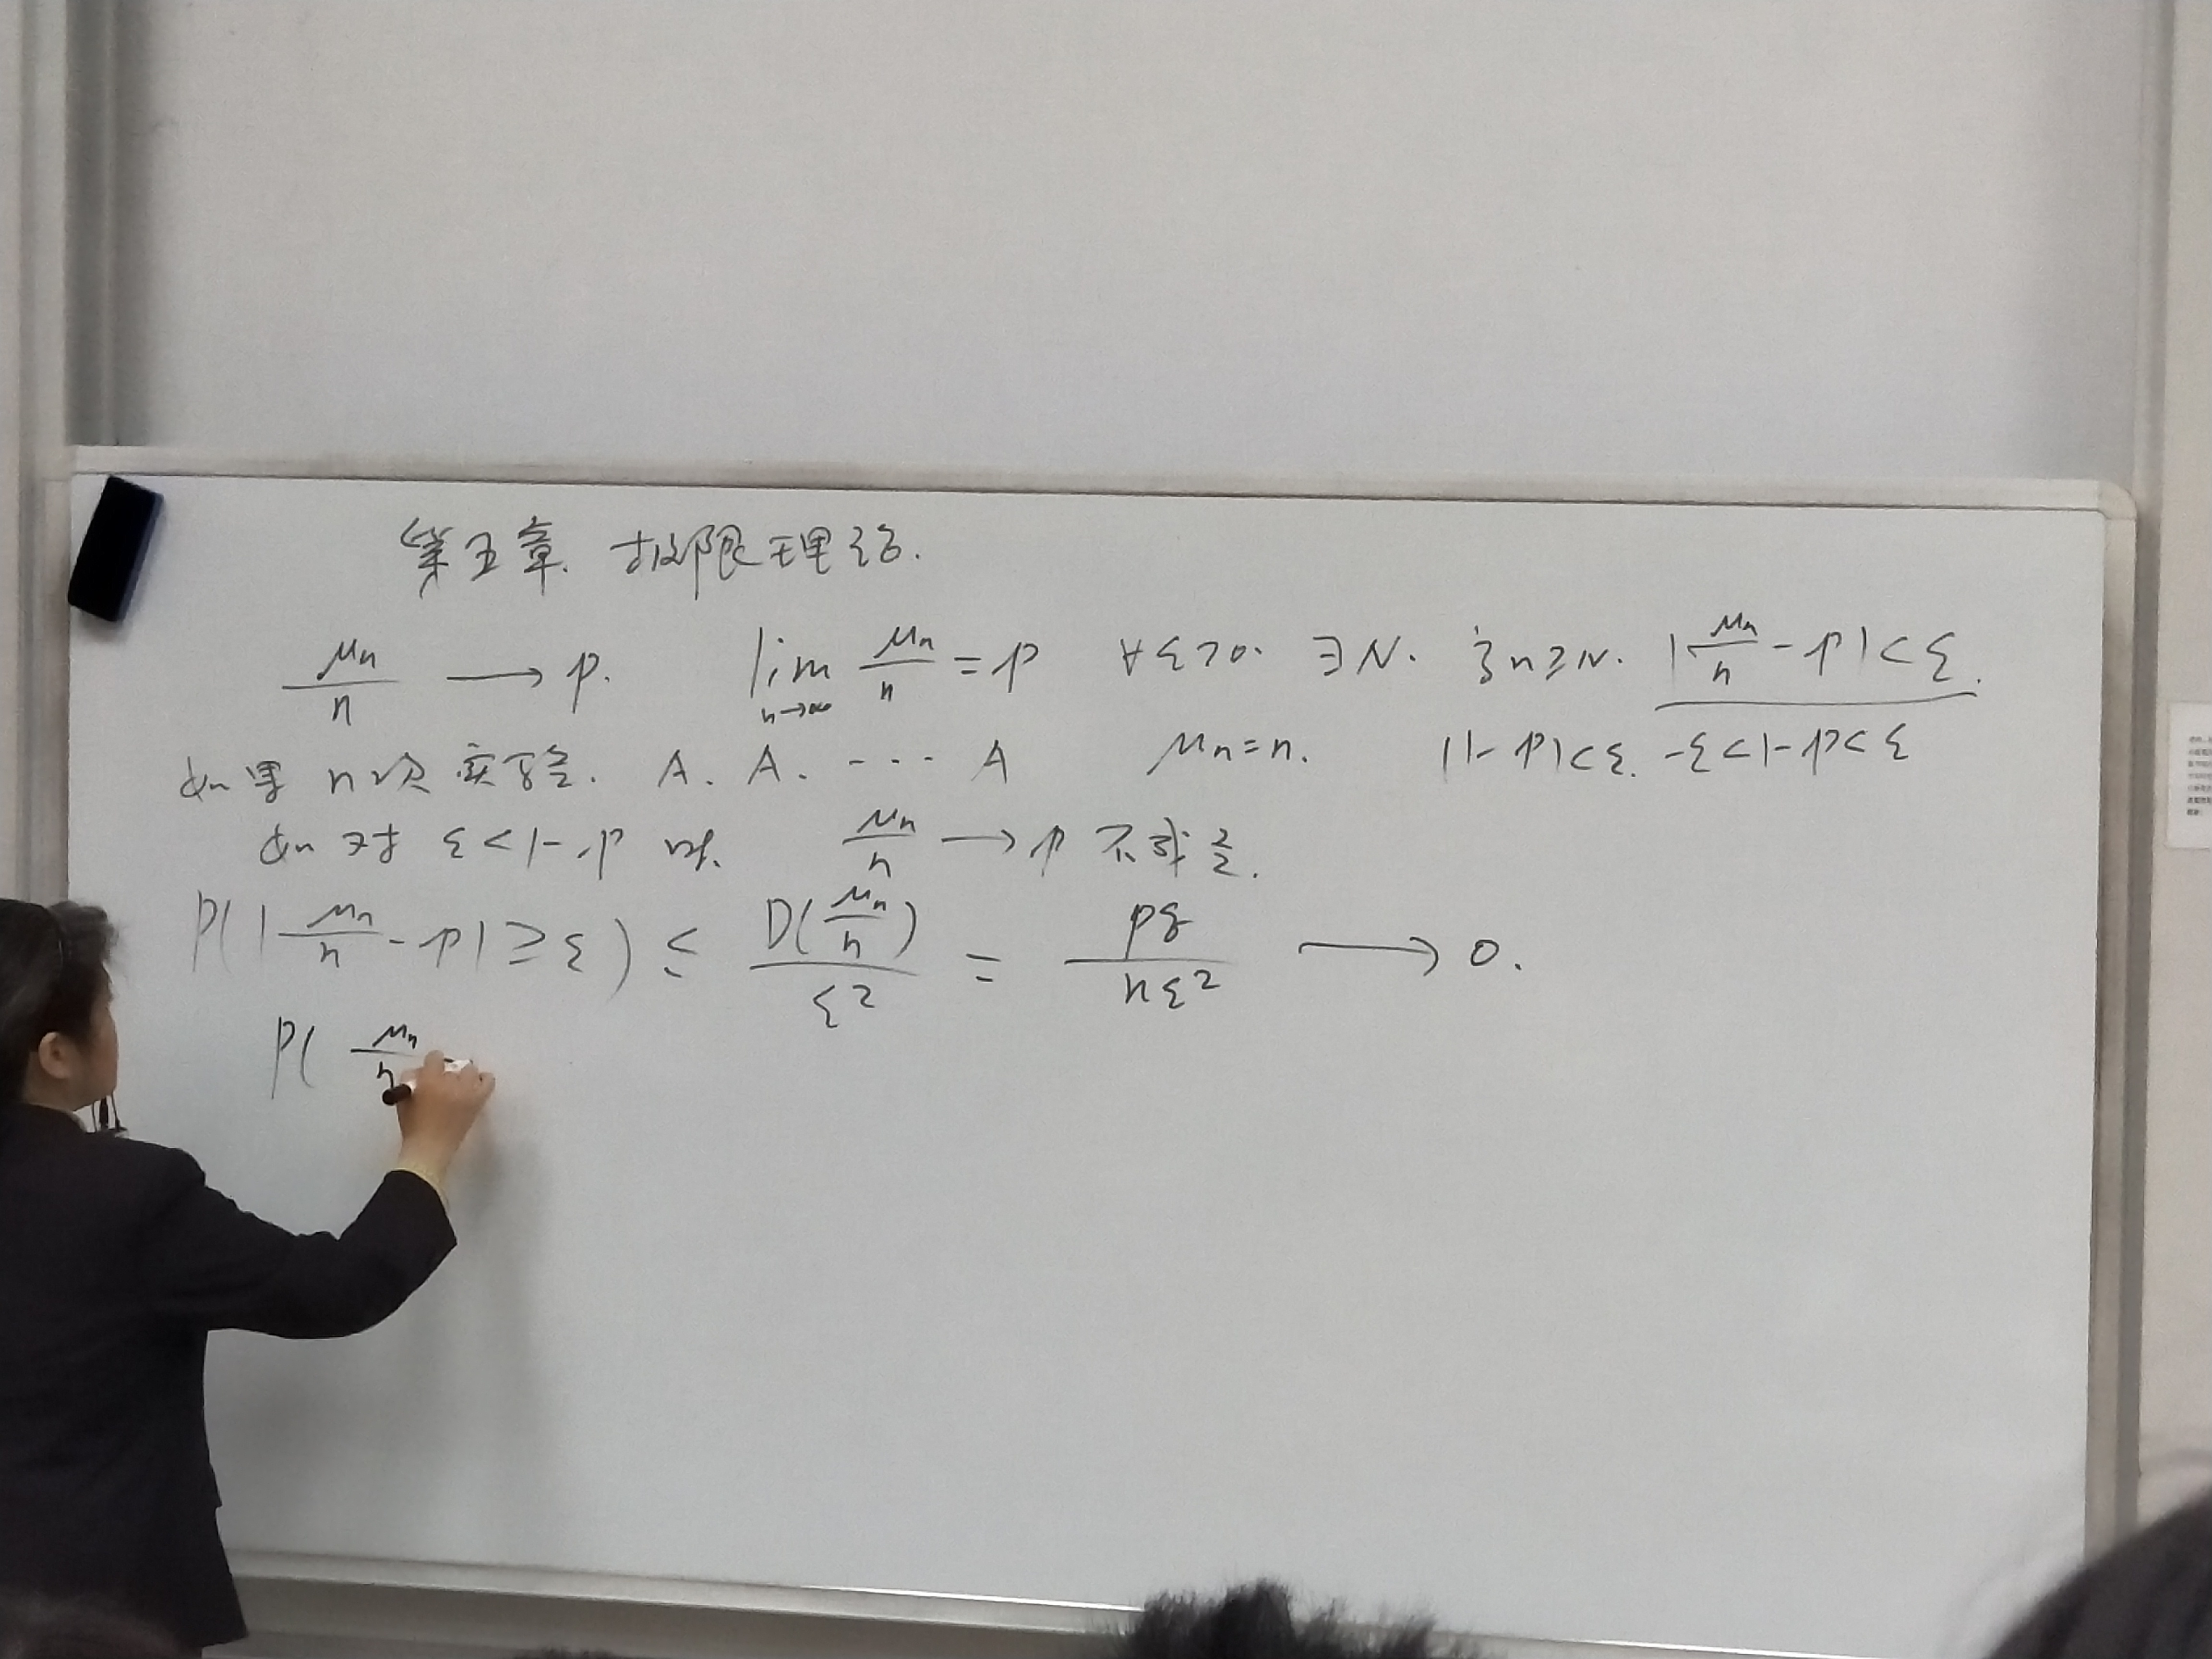 第五章. 极限理论.
μn/n ⟶ p. lim n→∞ μn/n = p ∀ε>0. ∃N. 当n≥N. |μn/n - p|<ε.
如果 n次实验. A. A. --- A μn=n. |1-p|<ε. -ε<1-p<ε
如对 ε<1-p 时. μn/n ⟶ p 不成立.
P(|μn/n - p| ≥ ε) ≤ D(μn/n)/ε² = pq/nε² ⟶ 0.
P( μn/n